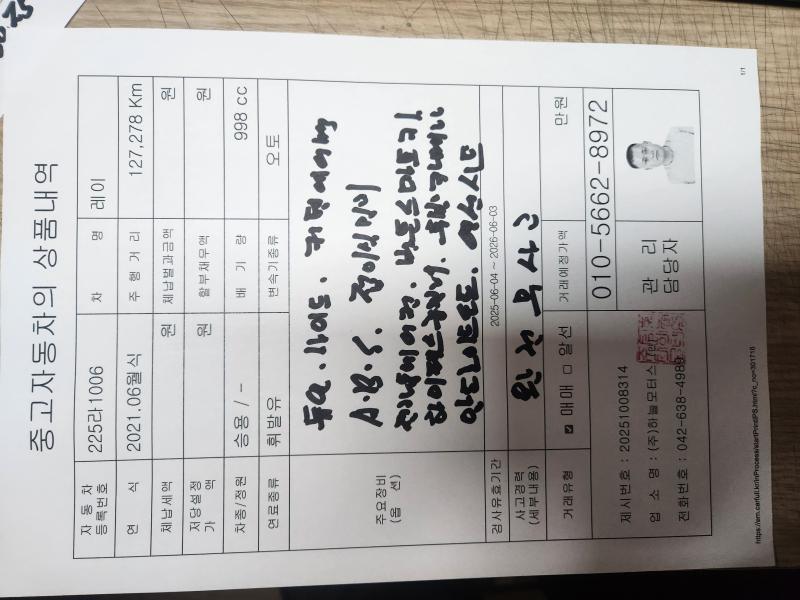 중고자동차의 상품내역
자동차 등록번호 225라1006 차 명 레이
연 식 2021.06월식 주 행 거 리 127,278 Km
체납세액 원 체납벌과금액 원
저당설정 가 액 원 할부채무액 원
차종/정원 승용 / - 배 기 량 998 cc
연료종류 휘발유 변속기종류 오토
주요장비 (옵 션)
듀얼.사이드.커텐에어백
A.B.S. 접이식미러
하이패스
안드로이드
검사유효기간 2025-06-04 ~ 2026-06-03
사고경력 (세부내용) 완전무사고
거래유형 ☑ 매매 □ 알선 거래예정가액 만원
제시번호 : 20251008314
업 소 명 : (주)하늘모터스
전화번호 : 042-638-4989
010-5662-8972
관 리
담당자
https://em.carfull.kr/inProcess/startPrintPS.html?c_no=301716
1/1